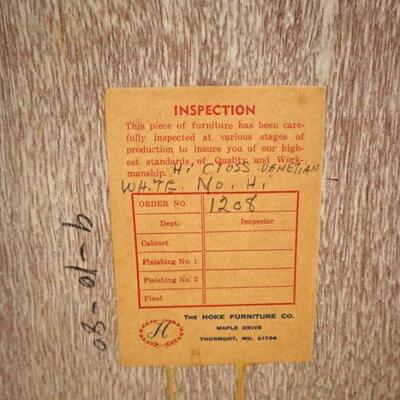 INSPECTION
This piece of furniture has been care-
fully inspected at various stages of
production to insure you of our high-
est standards of Quality and Work-
manship. Hi Closs Venetian
White No. Hi
ORDER NO. 1208
Dept. Inspector
Cabinet
Finishing No. 1
Finishing No. 2
Final
H
THE HOKE FURNITURE CO.
MAPLE DRIVE
THURMONT, MD. 21788